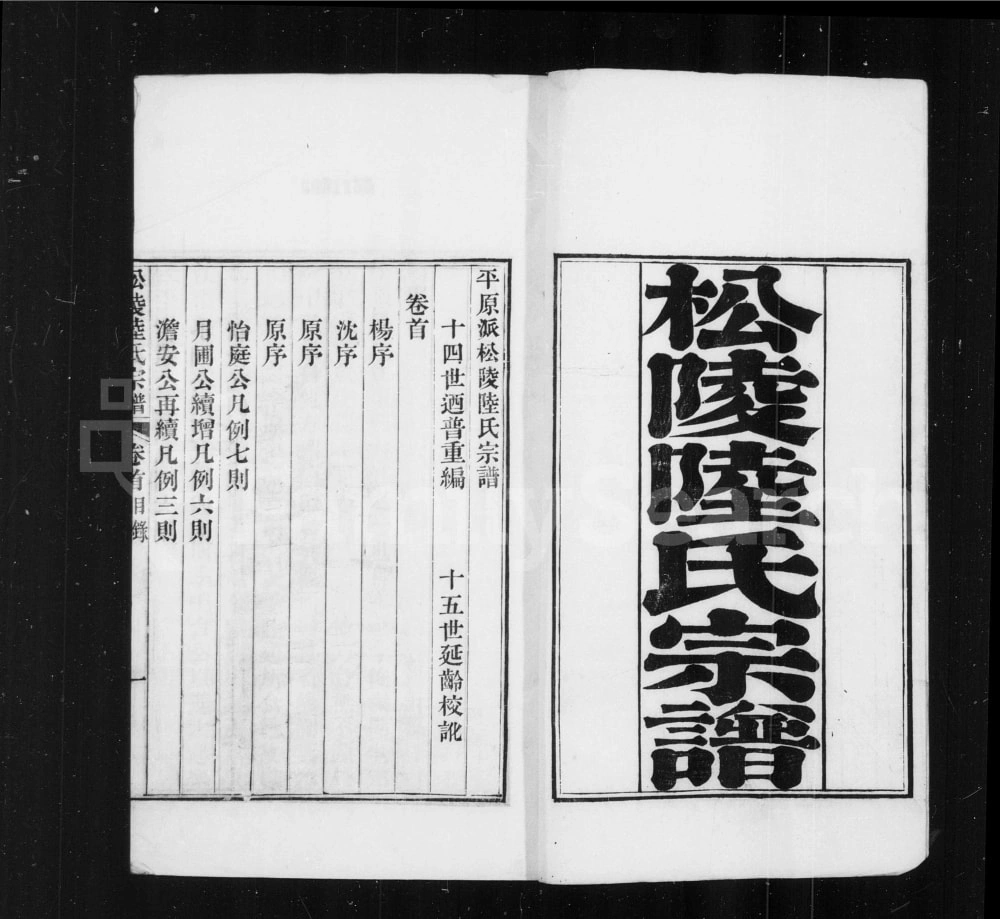 松陵陸氏宗譜
平原派松陵陸氏宗譜
十四世迺普重編 十五世延齡校訛
卷首
楊序
沈序
原序
原序
怡庭公凡例七則
月圃公續增凡例六則
澹安公再續凡例三則
松陵陸氏宗譜 卷首目錄 一
FamilySearch